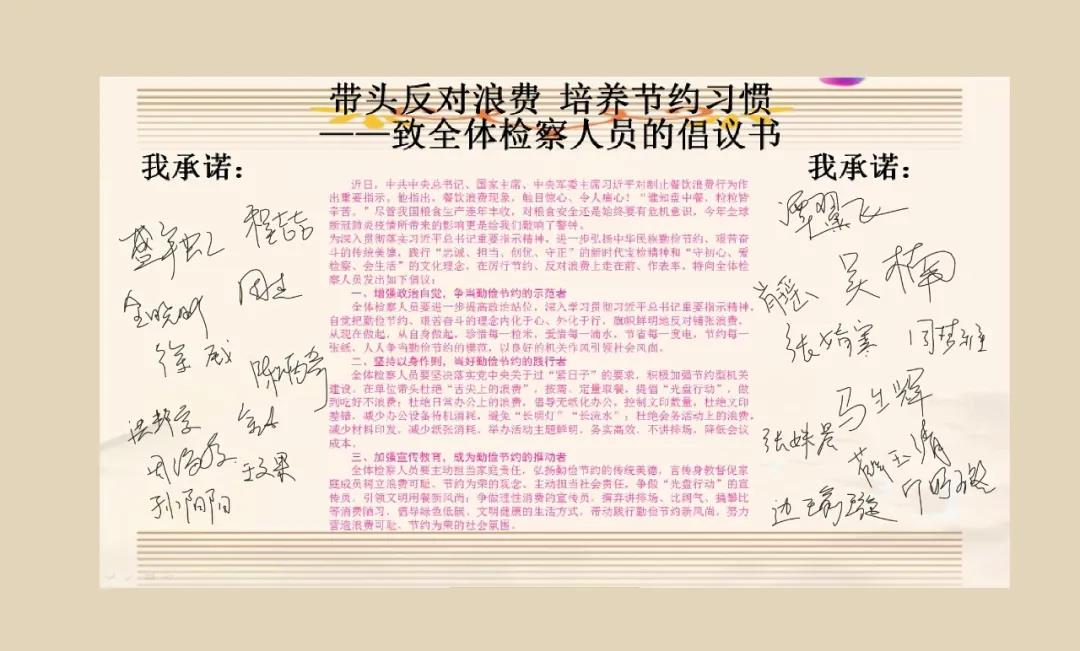 带头反对浪费 培养节约习惯
——致全体检察人员的倡议书
我承诺：
我承诺：
近日，中共中央总书记、国家主席、中央军委主席习近平对制止餐饮浪费行为作
出重要指示。他指出，餐饮浪费现象，触目惊心、令人痛心！“谁知盘中餐，粒粒皆
辛苦。”尽管我国粮食生产连年丰收，对粮食安全还是始终要有危机意识，今年全球
新冠肺炎疫情所带来的影响更是给我们敲响了警钟。
为深入贯彻落实习近平总书记重要指示精神，进一步弘扬中华民族勤俭节约、艰苦奋
斗的传统美德，践行“忠诚、担当、创优、守正”的新时代宝检精神和“守初心、爱
检察、会生活”的文化理念，在厉行节约、反对浪费上走在前、作表率，特向全体检
察人员发出如下倡议：
一、增强政治自觉，争当勤俭节约的示范者
全体检察人员要进一步提高政治站位，深入学习贯彻习近平总书记重要指示精神，
自觉把勤俭节约、艰苦奋斗的理念内化于心、外化于行，旗帜鲜明地反对铺张浪费，
从现在做起，从自身做起，珍惜每一粒米，爱惜每一滴水，节省每一度电，节约每一
张纸，人人争当勤俭节约的模范，以良好的机关作风引领社会风尚。
二、坚持以身作则，当好勤俭节约的践行者
全体检察人员要坚决落实党中央关于过“紧日子”的要求，积极加强节约型机关
建设，在单位带头杜绝“舌尖上的浪费”，按需、定量取餐，提倡“光盘行动”，做
到吃好不浪费；杜绝日常办公上的浪费，倡导无纸化办公，控制文印数量，杜绝文印
差错，减少办公设备待机消耗，避免“长明灯”“长流水”；杜绝会务活动上的浪费，
减少材料印发，减少纸张消耗，举办活动主题鲜明、务实高效、不讲排场，降低会议
成本。
三、加强宣传教育，成为勤俭节约的推动者
全体检察人员要主动担当家庭责任，弘扬勤俭节约的传统美德，言传身教督促家
庭成员树立浪费可耻、节约为荣的观念，主动担当社会责任，争做“光盘行动”的宣
传员，引领文明用餐新风尚；争做理性消费的宣传员，摒弃讲排场、比阔气、搞攀比
等消费陋习，倡导绿色低碳、文明健康的生活方式，带动践行勤俭节约新风尚，努力
营造浪费可耻、节约为荣的社会氛围。
程喆
周杰
徐威
王文果
孙阳阳
谭翼飞
肖瑶
吴楠
马生辉